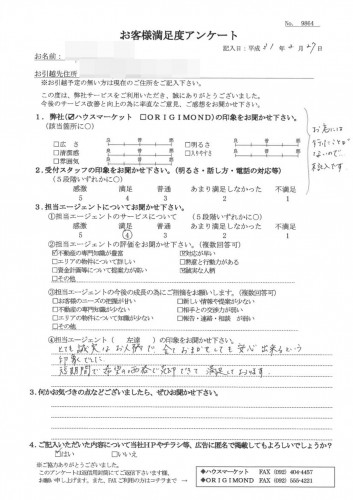 No. 9864
お客様満足度アンケート
記入日：平成 31 年 2 月 27 日
お名前：
お引越先住所
※お引越予定の無い方は現在のご住所をご記入下さい。
この度は、弊社サービスをご利用いただき、誠にありがとうございました。
今後のサービス改善と向上の為に率直なご意見、ご感想をお聞かせ下さい。
1．弊社（☑ハウスマーケット □ORIGIMOND）の印象をお聞かせ下さい。
（該当箇所に○）
□広 さ
□清潔感
□雰囲気
□明るさ
□入りやすさ
良
普
悪
お店には
行ったことが
ないので、
未記入です。
2．受付スタッフの印象をお聞かせ下さい。（明るさ・話し方・電話の対応等）
（５段階いずれかに○）
感激 満足 普通 あまり満足しなかった 不満足
5 4 3 2 1
3．担当エージェントについてお聞かせ下さい。
①担当エージェントのサービスについて （５段階いずれかに○）
感激 満足 普通 あまり満足しなかった 不満足
5 ④ 3 2 1
②担当エージェントの評価をお聞かせ下さい。（複数回答可）
☑不動産の専門知識が豊富 ☑対応が早い
□エリアの物件について詳しい □熱意と行動力がある
□資金計画等について提案力が高い ☑誠実な人柄
□その他
③担当エージェントの今後の成長の為にご指摘をお願いします。（複数回答可）
□お客様のニーズの把握が甘い □新しい情報や提案が少ない
□不動産の専門知識が少ない □相手との交渉力が弱い
□エリアの物件について知識が少ない □報告・連絡・相談 が弱い
□その他
④担当エージェント（ 左達 ）の印象をお聞かせ下さい。
とても誠実なお人柄で、全ておまかせしても安心出来るという
印象でした。
短期間で希望の価格で売却できて満足しております。
3．何かお気づきの点などございましたら、ぜひお聞かせ下さい。
4．ご記入いただいた内容について当社ＨＰやチラシ等、広告に匿名で掲載してもよろしいでしょうか？
☑はい □いいえ
※ご協力ありがとうございました。
このアンケートは返信用封筒にてご返信下さいます様、
お願い申し上げます。また、FAX ご利用の方はコチラまで →
◆ハウスマーケット FAX (092) 404-4457
◆ORIGIMOND FAX (092) 555-4221